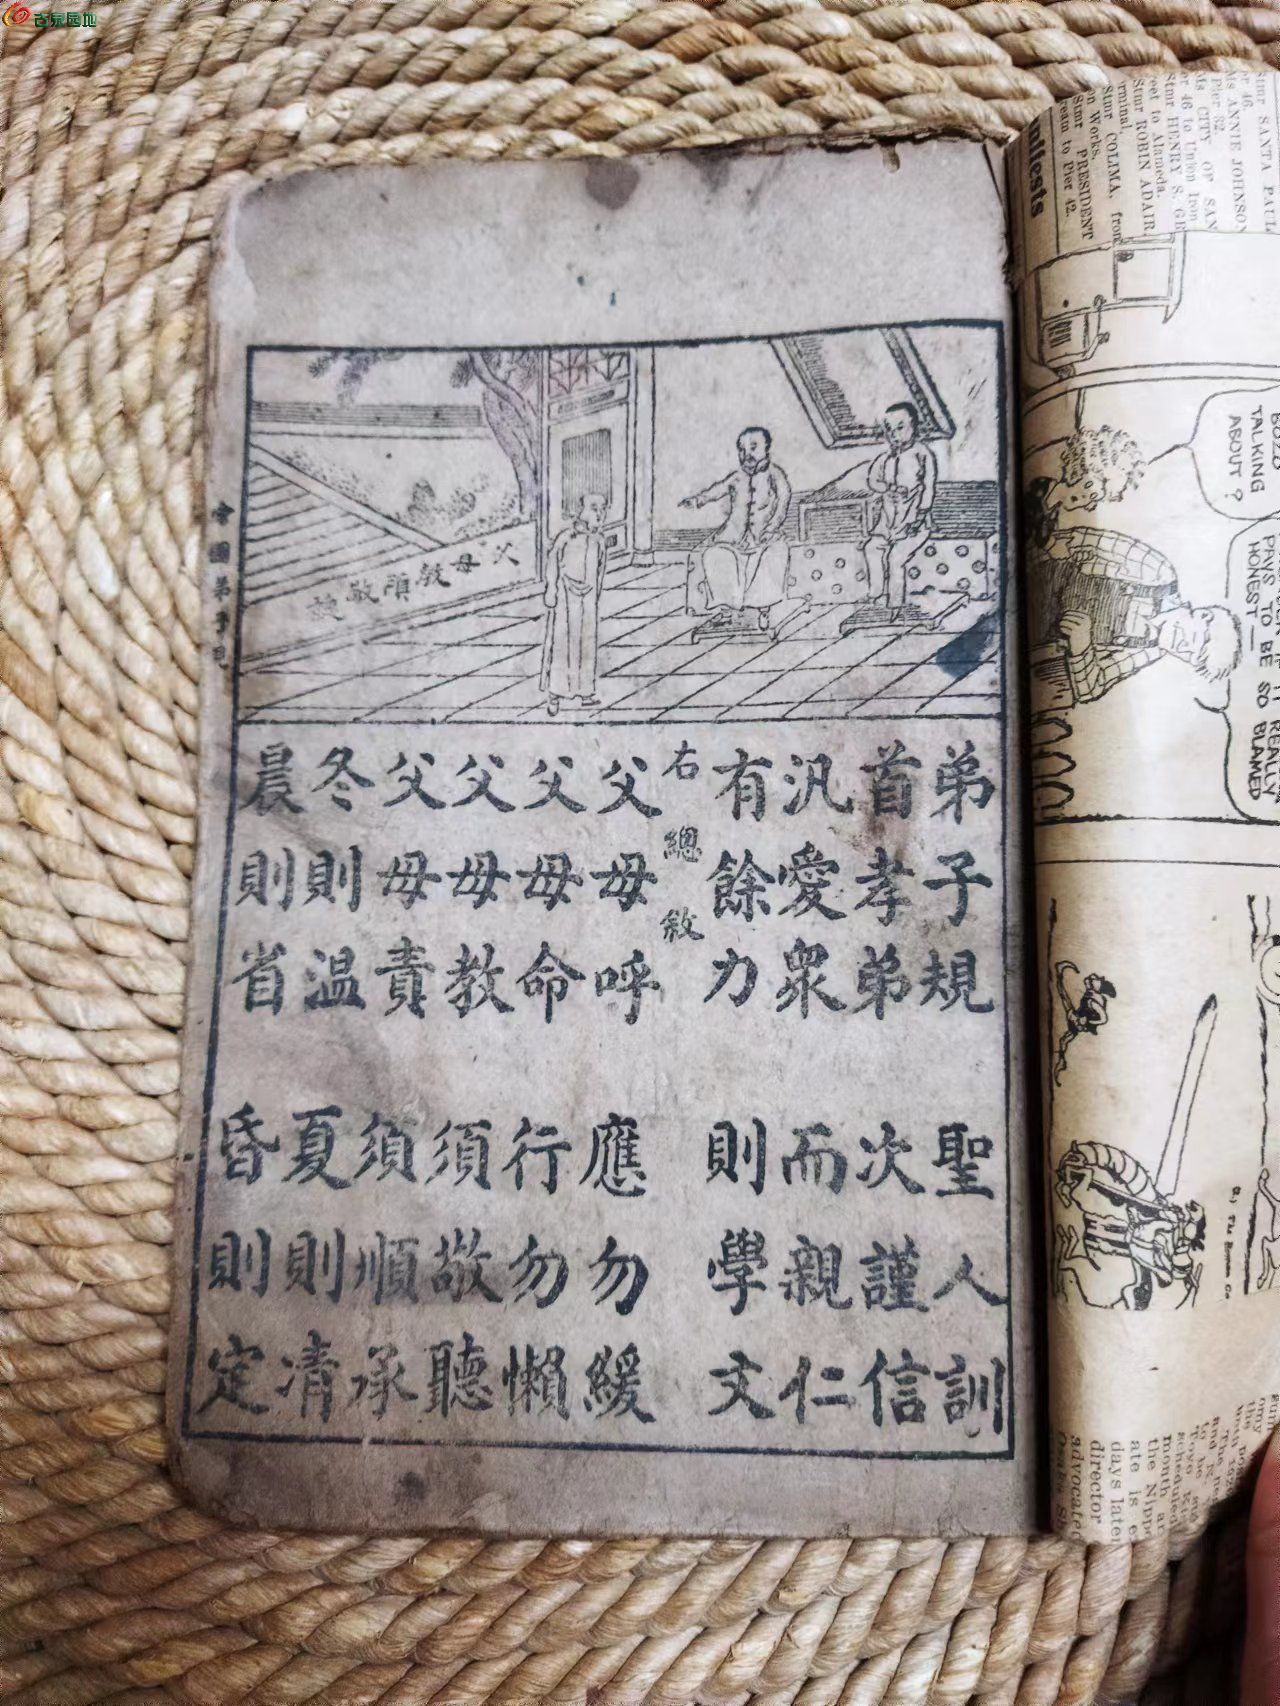 古泉园地
父母教須敬聽
會圖弟子規
弟子規 聖人訓
首孝弟 次謹信
汎愛眾 而親仁
有餘力 則學文
右總敘
父母呼 應勿緩
父母命 行勿懶
父母教 須敬聽
父母責 須順承
冬則溫 夏則凊
晨則省 昏則定
Stmr SANTA PAUL
or 46.
Ms ANNIE JOHNSON
Pier 32.
Ms CITY OF SAN
or 46 to Union Iron
Stmr HENRY S. GE
eet to Alameda.
Stmr ROBIN ADAIR
rminal.
Stmr COLIMA, from
on Works.
Stmr PRESIDENT
ream to Pier 42.
nifests
TALKING
ABOUT?
IT REALLY
PAYS TO BE SO BLAMED
HONEST—
The ne
to be
scheduled
month ar
the Nippo
ate is e
days later
director
advocated